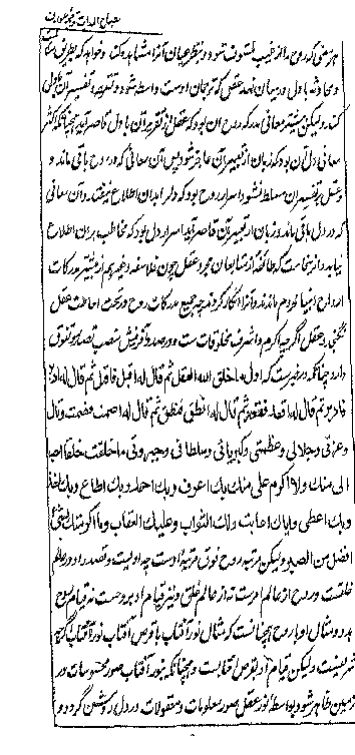 هر معنی که روح را از غیب مکشوف شود و بنظر عیان آنرا مشاهده کند و خواهد که بطریق مکالمت
و محادثه با دل در میان نهد عقل که ترجمان اوست واسطه شود و تقریر و تفسیر آن با دل
کند ولیکن بیشتر معانی مدرکه روح آن بود که عقل از تقریر آن با دل قاصر آید همچنانکه اکثر
معانی دل آن بود که زبان از تفسیر آن عاجز شود پس آن معانی که در روح باقی ماند و
عقل بر تفسیر آن مسلط نشود اسرار روح بود که دلرا بدان اطلاع نیفتد و آن معانی
که در دل باقی ماند و زبان از تفسیر آن قاصر آید اسرار دل بود که مخاطب بر آن اطلاع
نیابد و از اینجاست که طائفه از متابعان مجرد عقل چون فلاسفه وغیرهم از بیشتر مدرکات
ارواح انبیا محروم ماندند و آنرا انکار کردند چه جمیع مدرکات روح در تحت احاطت عقل
نگنجد و عقل اگرچه اکرم و اشرف مخلوقات ست و در صدد آفرینش منصب تصدر و تفوق
دارد چنانکه در خبرست که اول ما خلق الله العقل ثم قال له اقبل فاقبل ثم قال له ادبر
فادبر ثم قال له اقعد فقعد ثم قال له انطق فنطق ثم قال له اصمت فصمت فقال
وعزتی و جلالی وعظمتی وکبریائی وسلطانی وجبروتی ما خلقت خلقا احب
الی منك ولا اکرم علی منك بك اعرف وبك احمد وبك اطاع وبك اخذ
وبك اعطی وایاك اعاتب ولك الثواب وعلیك العقاب وما اکرمتك بشیء
افضل من الصبر ولیکن مرتبه روح فوق مرتبه اوست چه اولیت و تصدر او در عالم
خلقت و روح از عالم امرست نه از عالم خلق و نیز قیام او بروحست نه قیام روح
بدو و مثال او با روح همچنانست که مثال نور آفتاب با قرص آفتاب نور آفتاب اگرچه
شریفست ولیکن قیام او بقرص آفتابست و همچنانکه بنور آفتاب صور محسوسات در
زمین ظاهر شود بواسطه نور عقل صور معلومات و معقولات در دل روشن گردد و